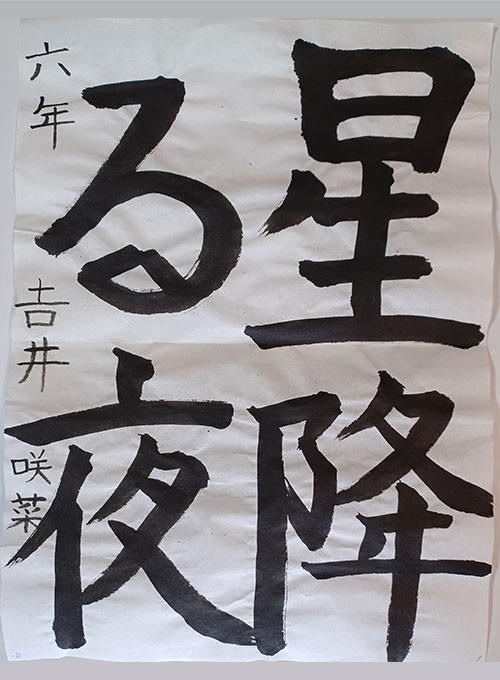 星降
る夜
六年 𠮷井 咲菜